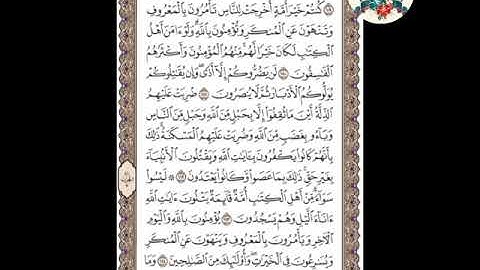 كُنتُمْ خَيْرَ أُمَّةٍ أُخْرِجَتْ لِلنَّاسِ تَأْمُرُونَ بِٱلْمَعْرُوفِ
وَتَنْهَوْنَ عَنِ ٱلْمُنكَرِ وَتُؤْمِنُونَ بِٱللَّهِ ۗ وَلَوْ ءَامَنَ أَهْلُ
ٱلْكِتَٰبِ لَكَانَ خَيْرًا لَّهُم ۚ مِّنْهُمُ ٱلْمُؤْمِنُونَ وَأَكْثَرُهُمُ
ٱلْفَٰسِقُونَ ١١٠ لَن يَضُرُّوكُمْ إِلَّآ أَذًى ۖ وَإِن يُقَٰتِلُوكُمْ
يُوَلُّوكُمُ ٱلْأَدْبَارَ ثُمَّ لَا يُنصَرُونَ ١١١ ضُرِبَتْ عَلَيْهِمُ
ٱلذِّلَّةُ أَيْنَ مَا ثُقِفُوٓا۟ إِلَّا بِحَبْلٍ مِّنَ ٱللَّهِ وَحَبْلٍ مِّنَ ٱلنَّاسِ
وَبَآءُو بِغَضَبٍ مِّنَ ٱللَّهِ وَضُرِبَتْ عَلَيْهِمُ ٱلْمَسْكَنَةُ ۚ ذَٰلِكَ
بِأَنَّهُمْ كَانُوا۟ يَكْفُرُونَ بِـَٔايَٰتِ ٱللَّهِ وَيَقْتُلُونَ ٱلْأَنۢبِيَآءَ
بِغَيْرِ حَقٍّ ۚ ذَٰلِكَ بِمَا عَصَوا۟ وَّكَانُوا۟ يَعْتَدُونَ ١١٢ لَيْسُوا۟
سَوَآءً ۗ مِّنْ أَهْلِ ٱلْكِتَٰبِ أُمَّةٌ قَآئِمَةٌ يَتْلُونَ ءَايَٰتِ ٱللَّهِ
ءَانَآءَ ٱلَّيْلِ وَهُمْ يَسْجُدُونَ ١١٣ يُؤْمِنُونَ بِٱللَّهِ وَٱلْيَوْمِ
ٱلْـَٔاخِرِ وَيَأْمُرُونَ بِٱلْمَعْرُوفِ وَيَنْهَوْنَ عَنِ ٱلْمُنكَرِ
وَيُسَٰرِعُونَ فِى ٱلْخَيْرَٰتِ وَأُو۟لَٰٓئِكَ مِنَ ٱلصَّٰلِحِينَ ١١٤ وَمَا